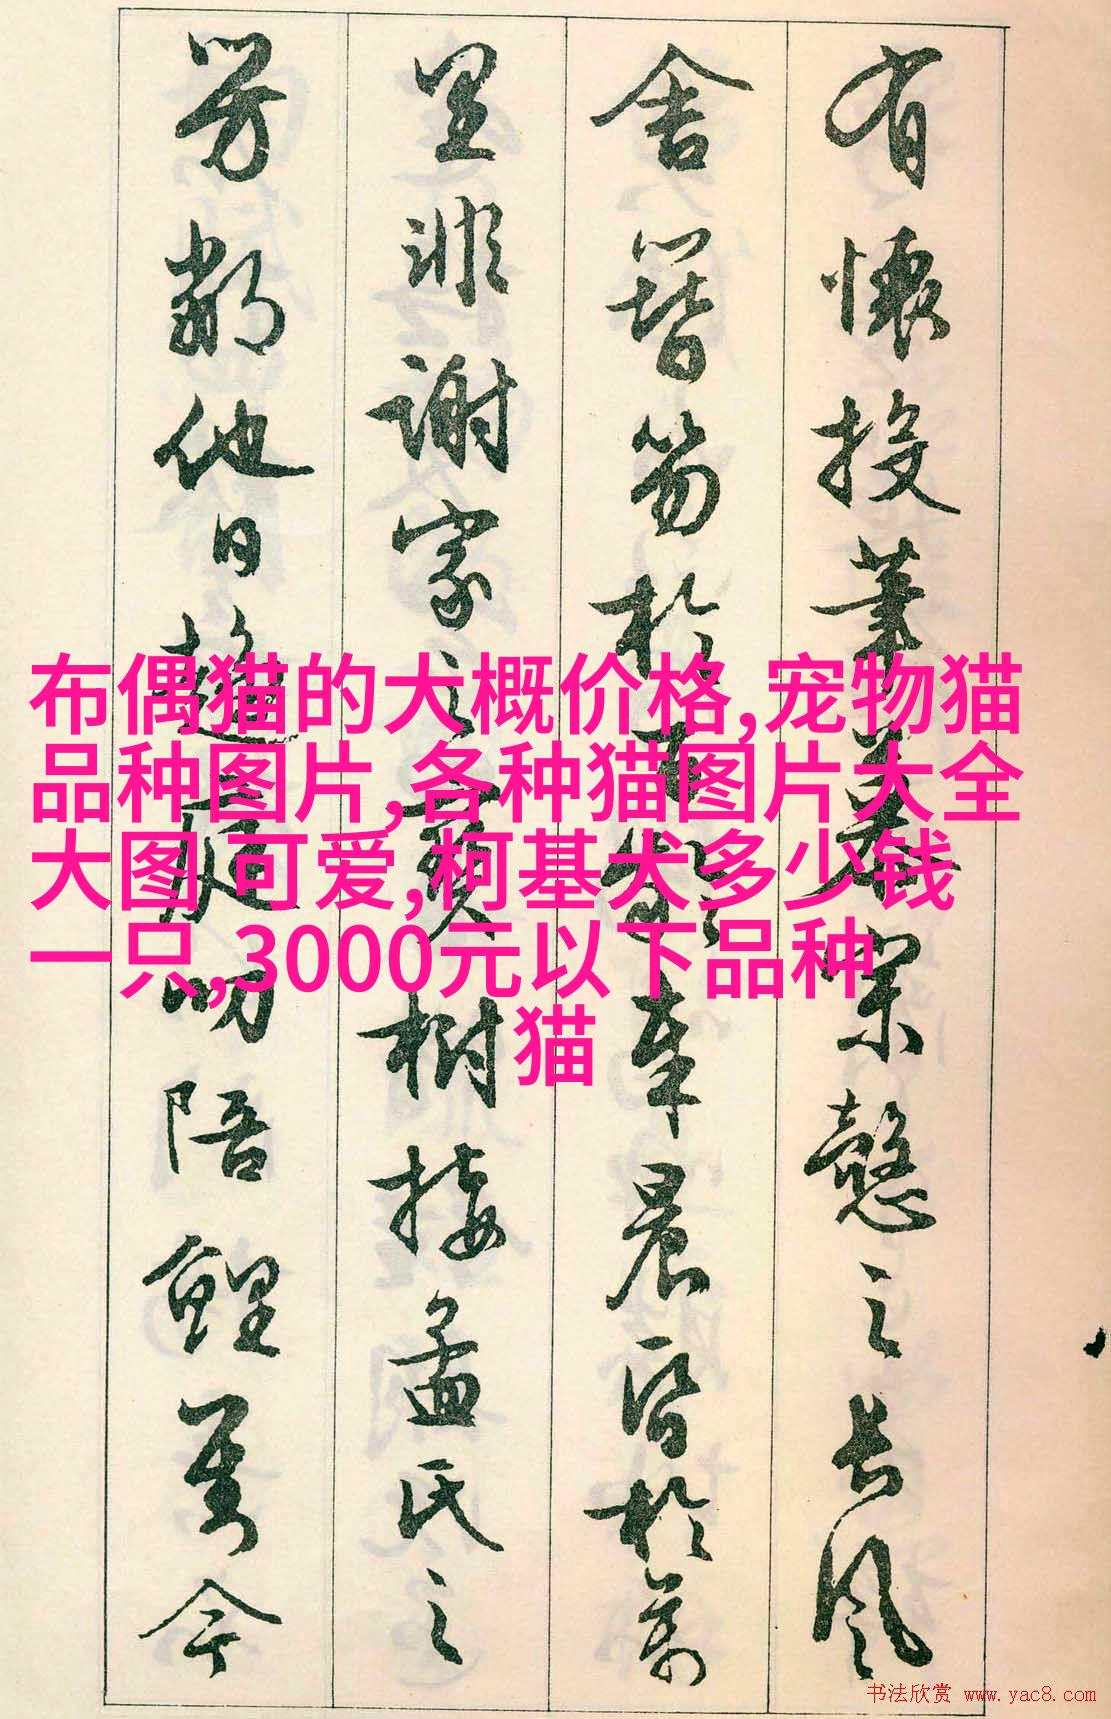 有懷投筆慕宗慤之長風
舍簪笏於百齡奉晨昏於萬
里非謝家之寶樹接孟氏之
芳鄰他日趨庭叨陪鯉對今
布偶猫的大概价格,宠物猫
品种图片,各种猫图片大全
大图 可爱,柯基犬多少钱
一只,3000元以下品种
猫
书法欣赏 www.yac8.com